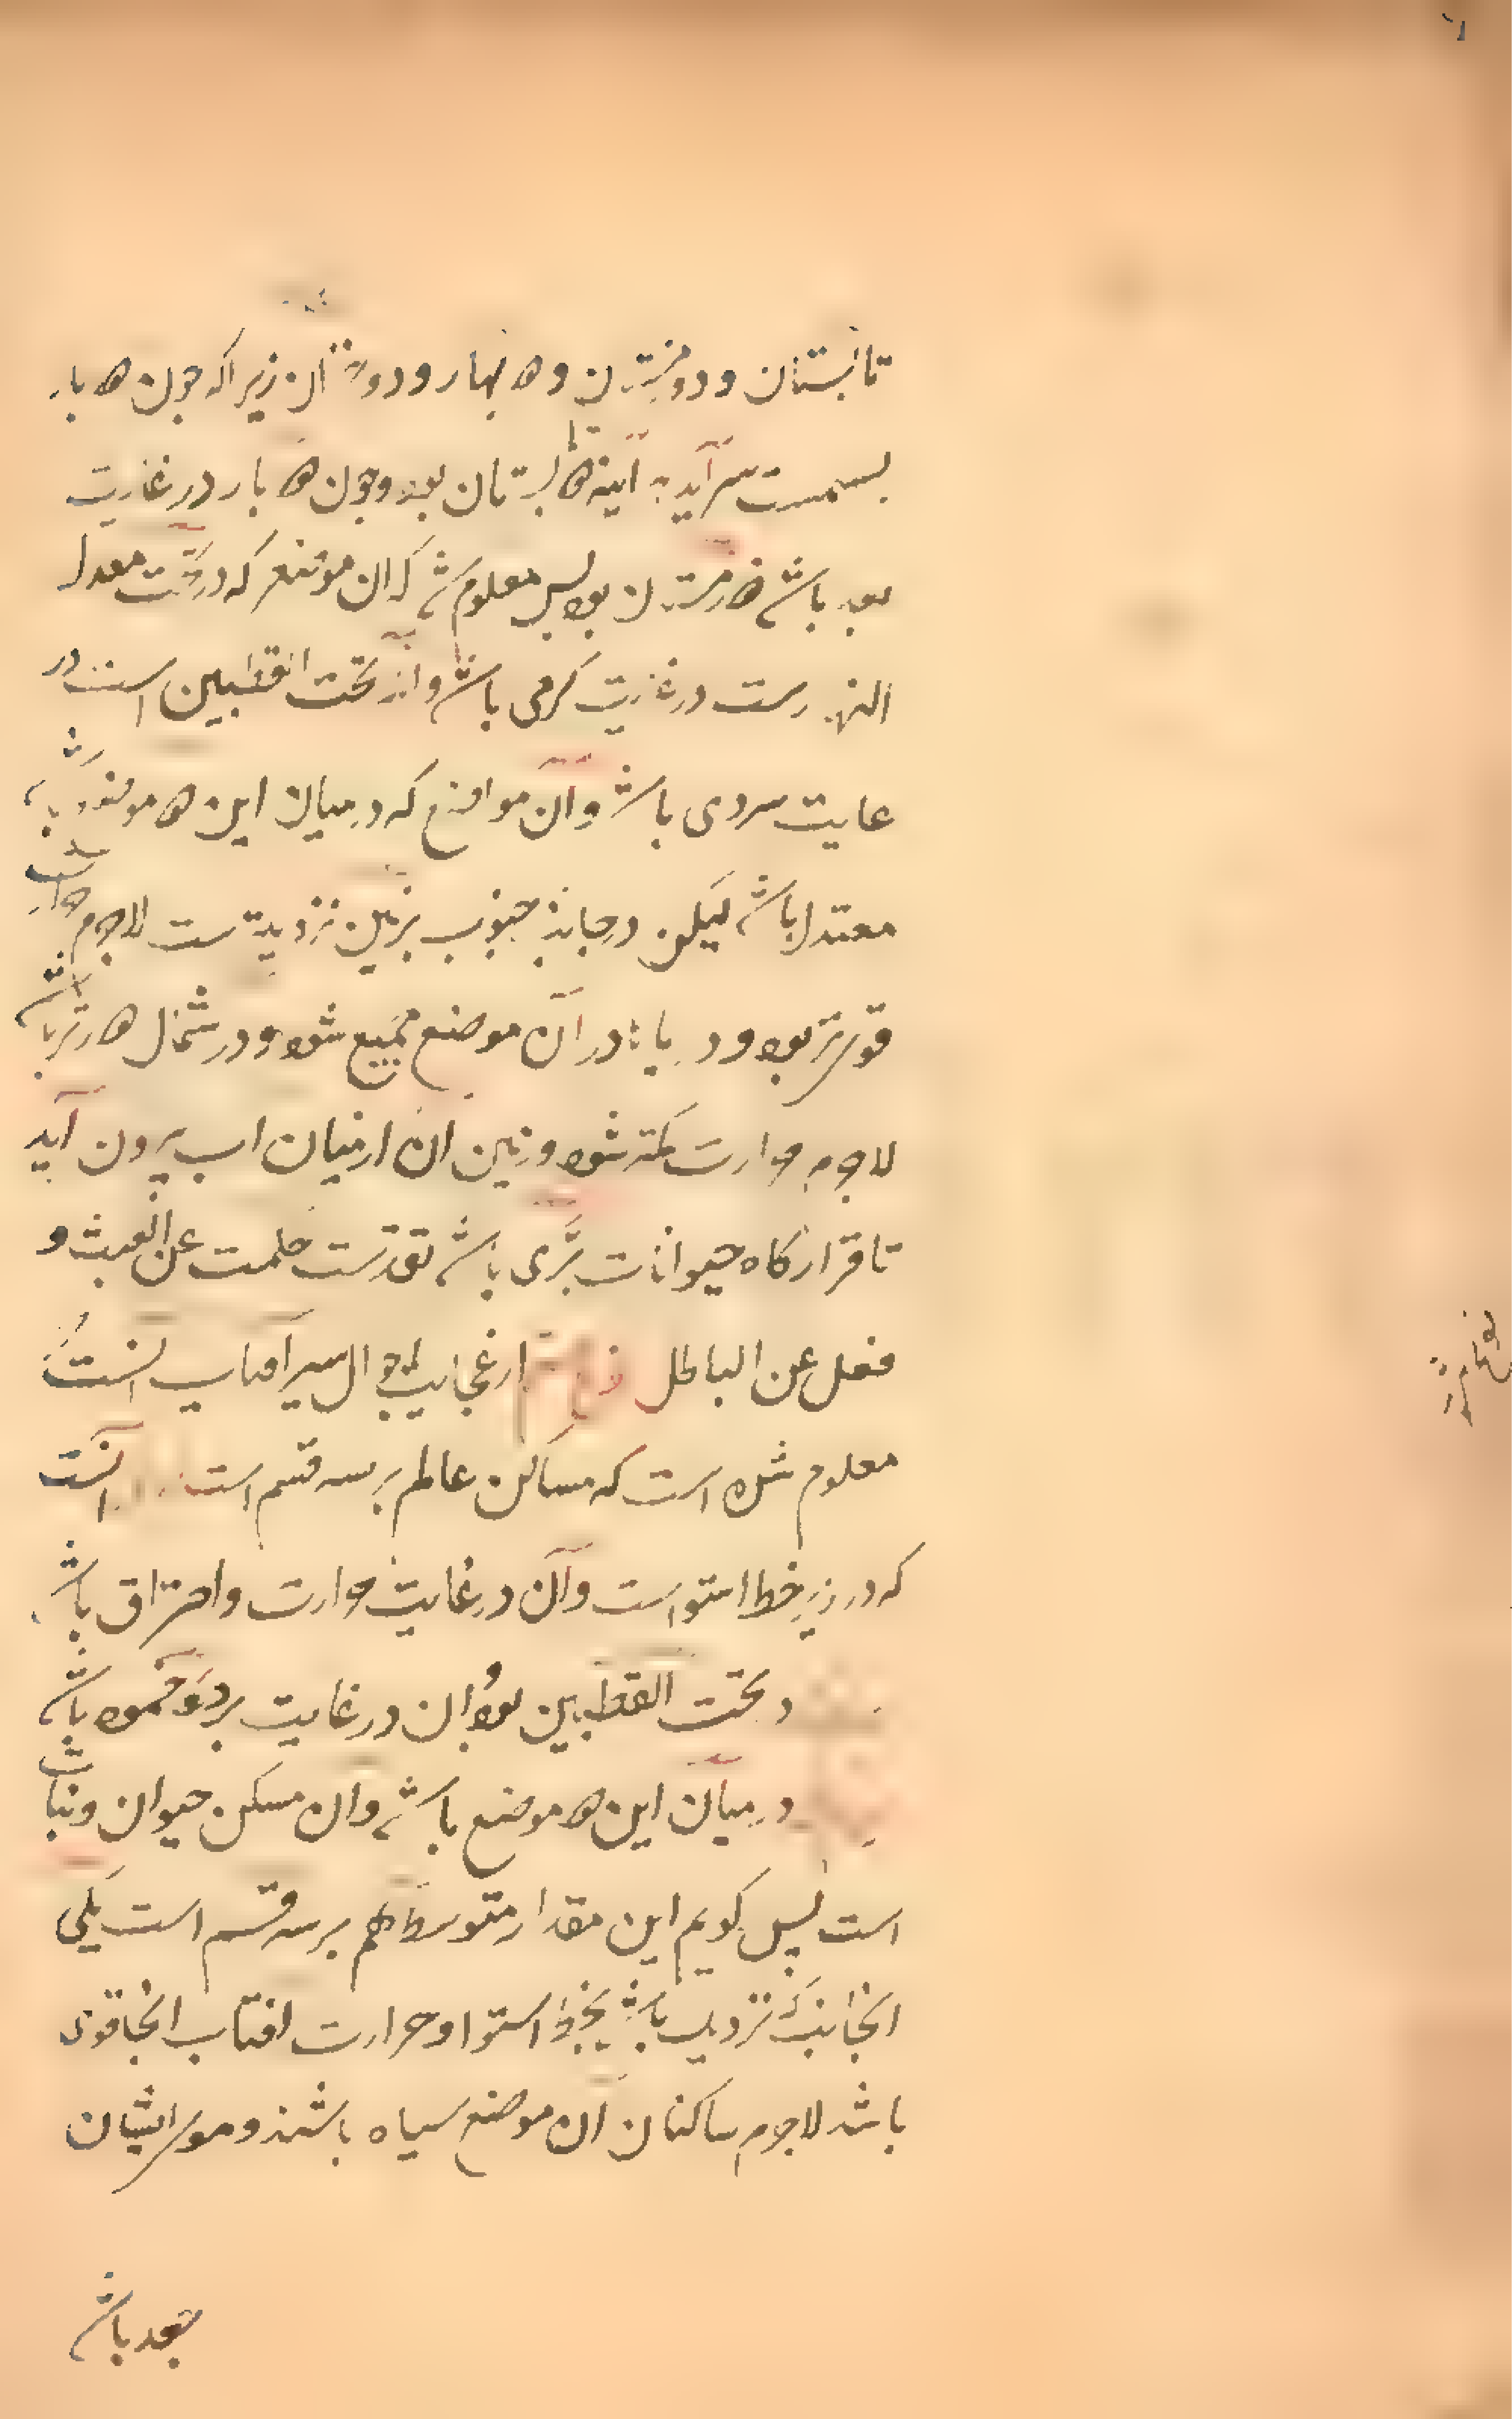 تابستان و دو زمستان و دو بهار و دو خزان زیرا که چون دو بار
بسمت سر آید هر آینه دو تابستان بود و چون دو بار در غایت
بعد باشد دو زمستان بود پس معلوم شد که آن موضع که در تحت معدل
النهارست در غایت گرمی باشد و آنچ تحت القطبین است در
غایت سردی باشد و آن مواضع که در میان این دو موضع باشد
معتدل باشد لیکن در جانب جنوب بزمین نزدیکترست لاجرم حرارت
قوی‌تر بود و دریاها در آن موضع جمع شود و در شمال دورتر باشد
لاجرم حرارت کمتر شود و زمین آن از میان آب بیرون آید
تا قرارگاه حیوانات بری باشد تقدست حکمت عن العبث و
فعل عن الباطل از عجایب احوال سیر آفتاب آنست که
معلوم شده است که مساکن عالم بر سه قسم است آنست
که در زیر خط استواست و آن در غایت حرارت و احتراق باشد
در تحت القطبین بود و آن در غایت برد و خمود باشد
در میان این دو موضع باشد و آن مسکن حیوان و نبات
است پس گویم این مقدار متوسط هم بر سه قسم است یکی
آنجانب که نزدیک باشد بخط استوا و حرارت آفتاب آنجا قوی
باشد لاجرم ساکنان آن موضع سیاه باشند و موی ایشان
جعد باشد